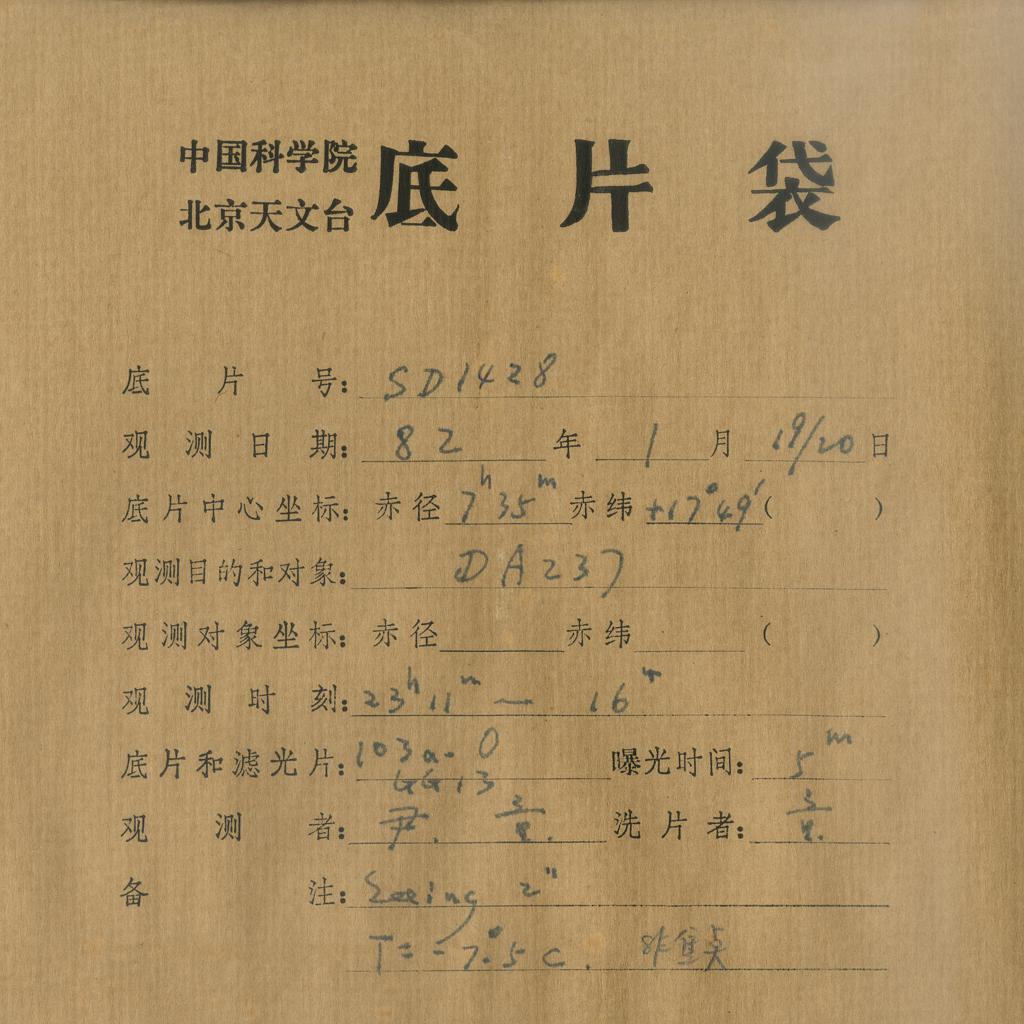 中国科学院
北京天文台
底片袋
底片号: SD1428
观测日期: 82年 1月 19/20日
底片中心坐标: 赤径 7h35m 赤纬 +17°49′( )
观测目的和对象: DA237
观测对象坐标: 赤径 赤纬 ( )
观测时刻: 23h11m — 16m
底片和滤光片: 103a-O 曝光时间: 5m
GG13
观测者: 尹. 洗片者:
备注: Seeing 2″
T=-7.°5 C. 非焦点